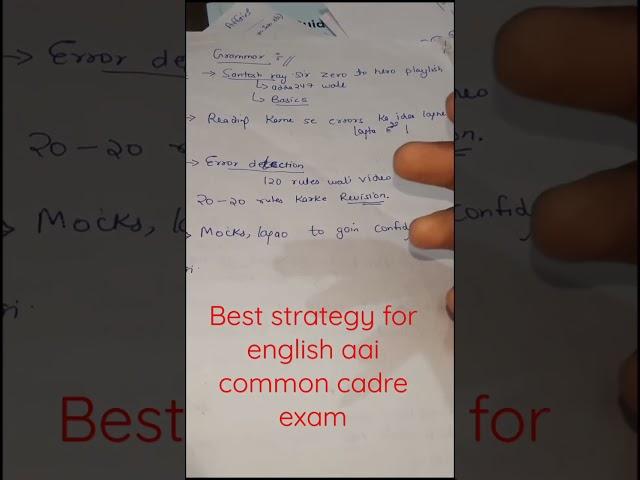 Affairs
uid
Grammar :-
→ Santosh ray sir zero to hero playlish
↳ adda247 wale
↳ Basics
→ Reading karne se errors ka idea lapne
lapta
→ Error detection
120 rules wali video
20-20 rules karke Revision.
Mocks, lapao to gain confid
Best strategy for
english aai
common cadre
exam